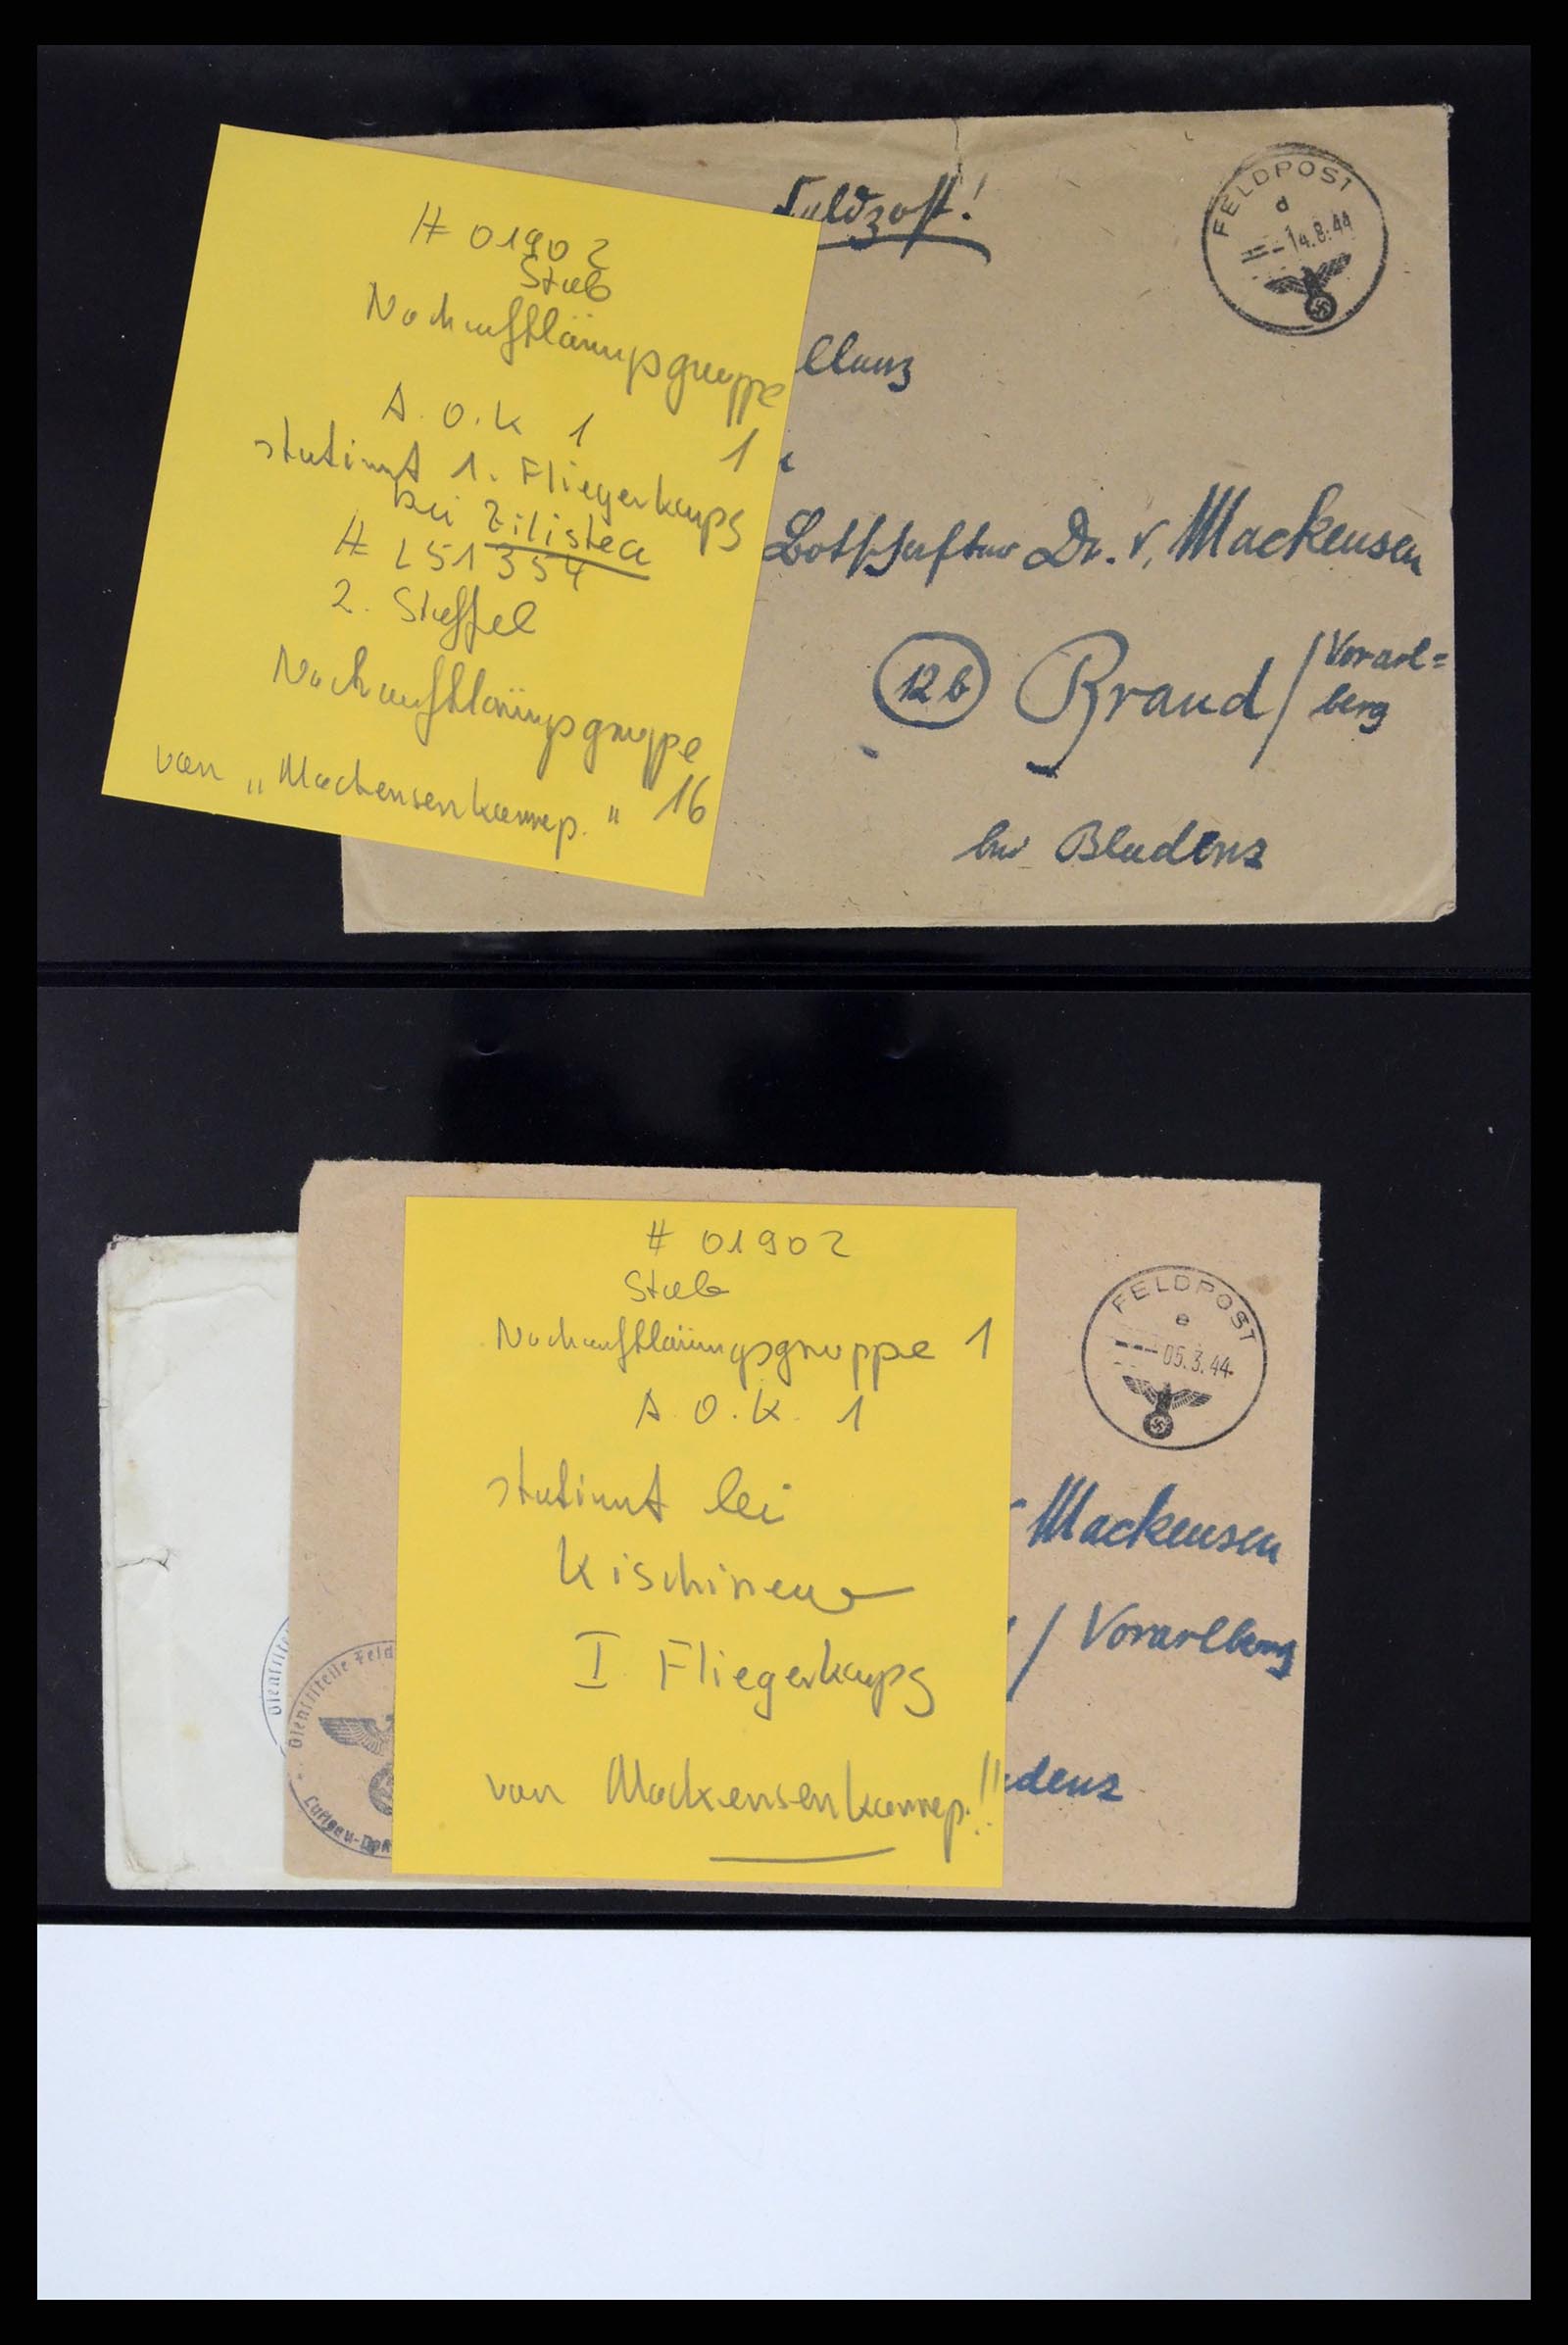 # 01902
Stab
Nachaufklärungsgruppe
1
A.O.K 1
1. Fliegerkorps
bei Zilistea
# L 51354
2. Staffel
Nachaufklärungsgruppe
16
van „Mackensenkorresp."
Feldpost!
FELDPOST
d
-14.8.44
llenz
Botschafter Dr. v. Mackensen
12b Brand / Vorarl=
berg
bei Bludenz
# 01902
Stab
Nachaufklärungsgruppe 1
A.O.K. 1
stationiert bei
Kischinew
I Fliegerkorps
van Mackensenkorresp.!!
FELDPOST
e
---05.3.44-
Mackensen
/ Vorarlberg
denz
Dienststelle
Dienststelle Feld
Luftgau-Pos